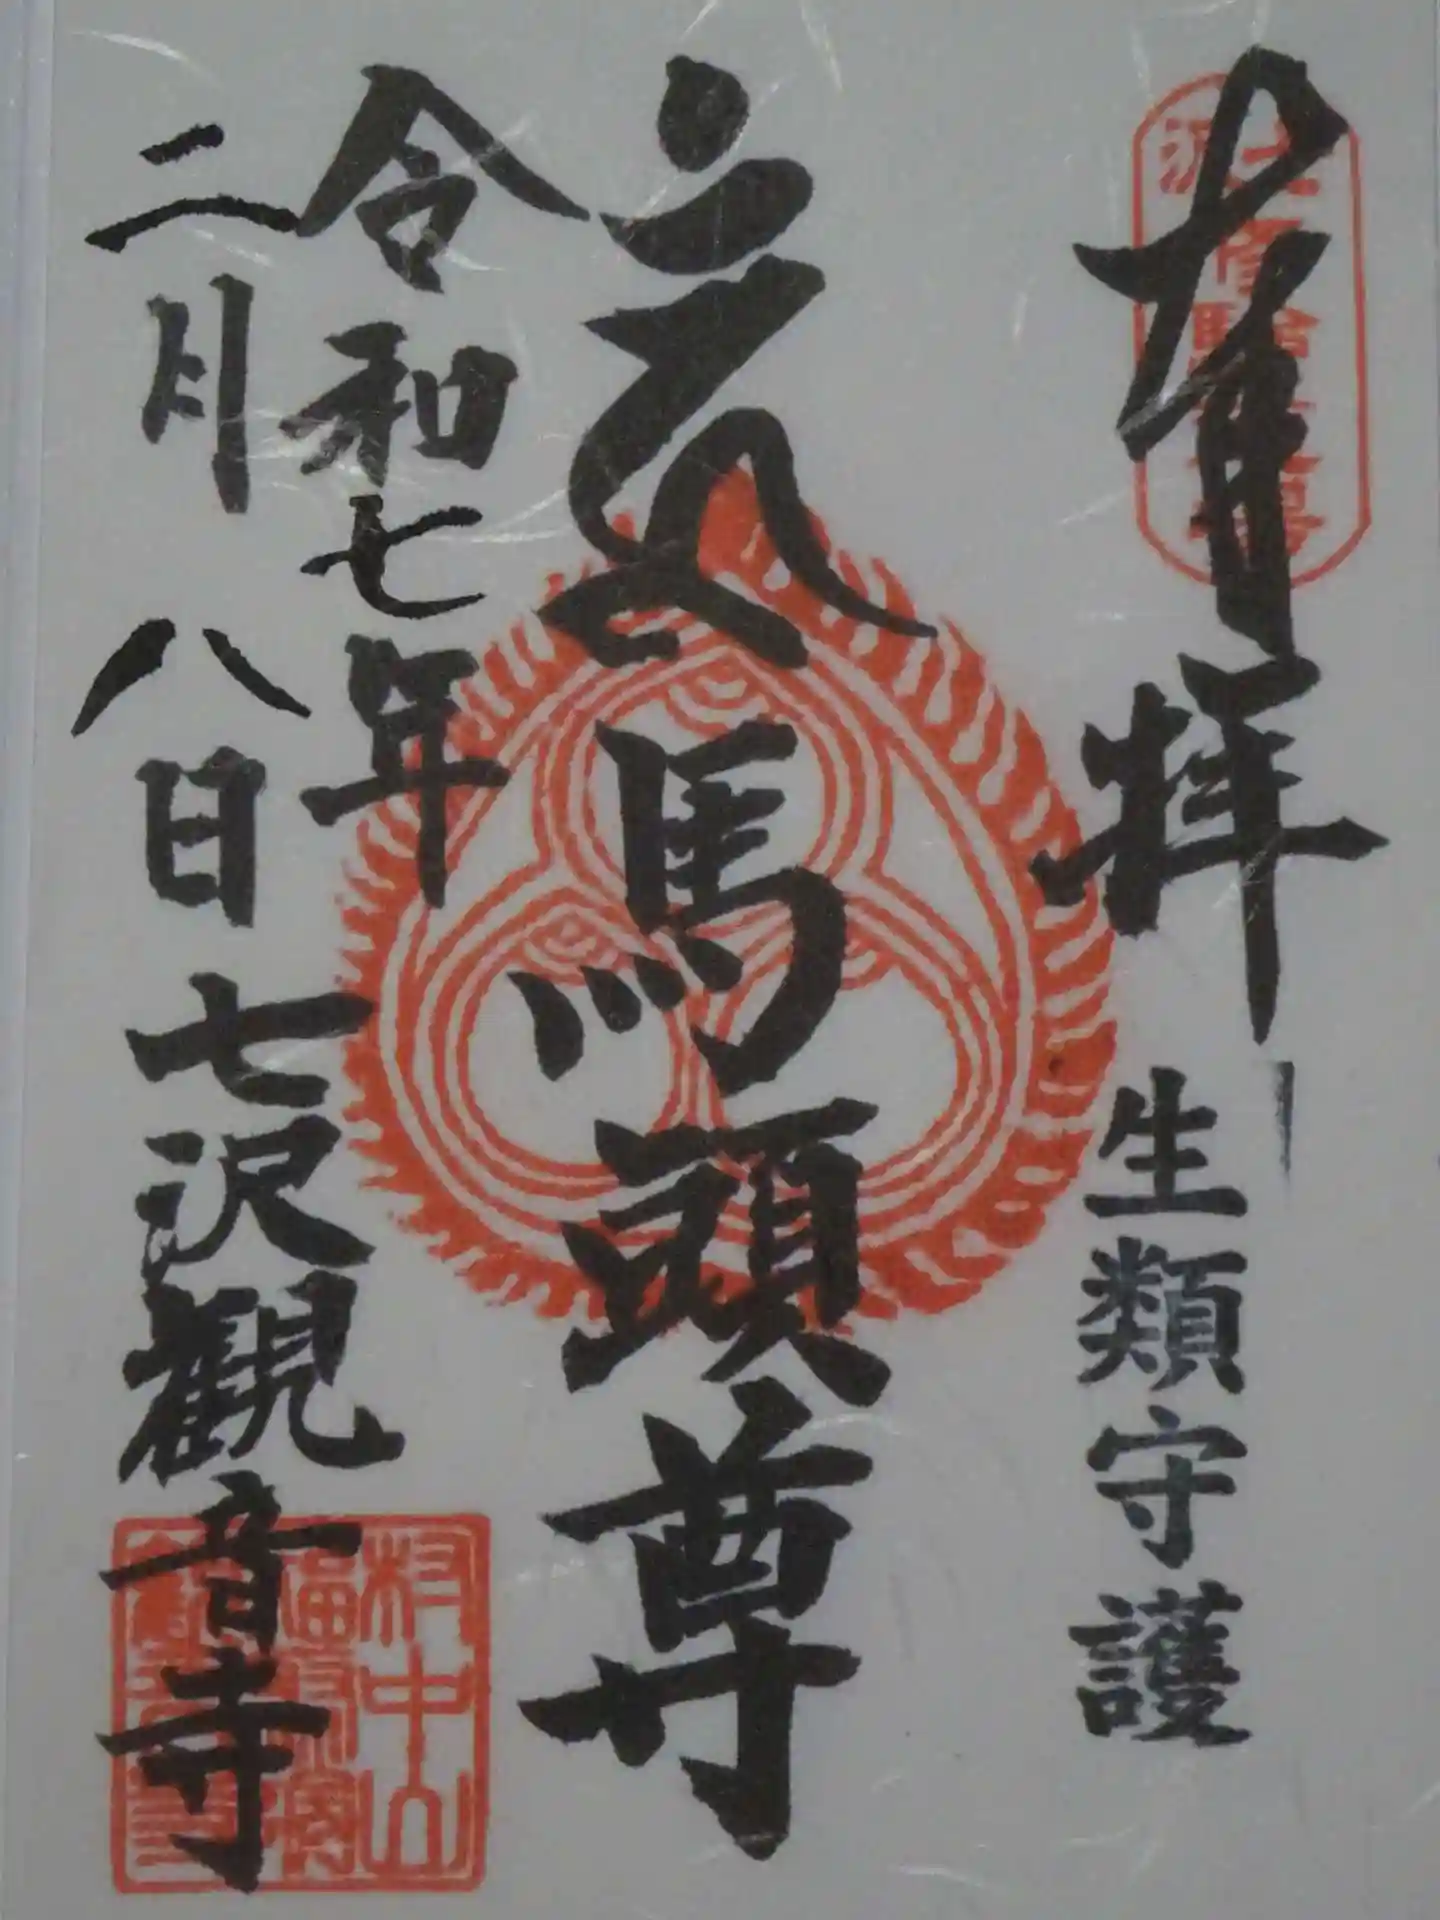 奉拝 生類守護
馬頭尊
令和七年
二月八日 七沢観音寺
村中山